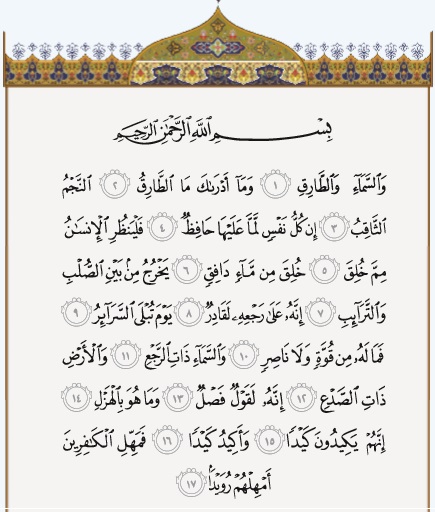 بِسْمِ اللَّهِ الرَّحْمَٰنِ الرَّحِيمِ
وَالسَّمَآءِ وَالطَّارِقِ ١ وَمَآ أَدْرَىٰكَ مَا الطَّارِقُ ٢ النَّجْمُ
الثَّاقِبُ ٣ إِن كُلُّ نَفْسٍ لَّمَّا عَلَيْهَا حَافِظٌ ٤ فَلْيَنظُرِ الْإِنسَٰنُ
مِمَّ خُلِقَ ٥ خُلِقَ مِن مَّآءٍ دَافِقٍ ٦ يَخْرُجُ مِنۢ بَيْنِ الصُّلْبِ
وَالتَّرَآئِبِ ٧ إِنَّهُۥ عَلَىٰ رَجْعِهِۦ لَقَادِرٌ ٨ يَوْمَ تُبْلَى السَّرَآئِرُ ٩
فَمَا لَهُۥ مِن قُوَّةٍ وَلَا نَاصِرٍ ١٠ وَالسَّمَآءِ ذَاتِ الرَّجْعِ ١١ وَالْأَرْضِ
ذَاتِ الصَّدْعِ ١٢ إِنَّهُۥ لَقَوْلٌ فَصْلٌ ١٣ وَمَا هُوَ بِالْهَزْلِ ١٤
إِنَّهُمْ يَكِيدُونَ كَيْدًا ١٥ وَأَكِيدُ كَيْدًا ١٦ فَمَهِّلِ الْكَٰفِرِينَ
أَمْهِلْهُمْ رُوَيْدًۢا ١٧